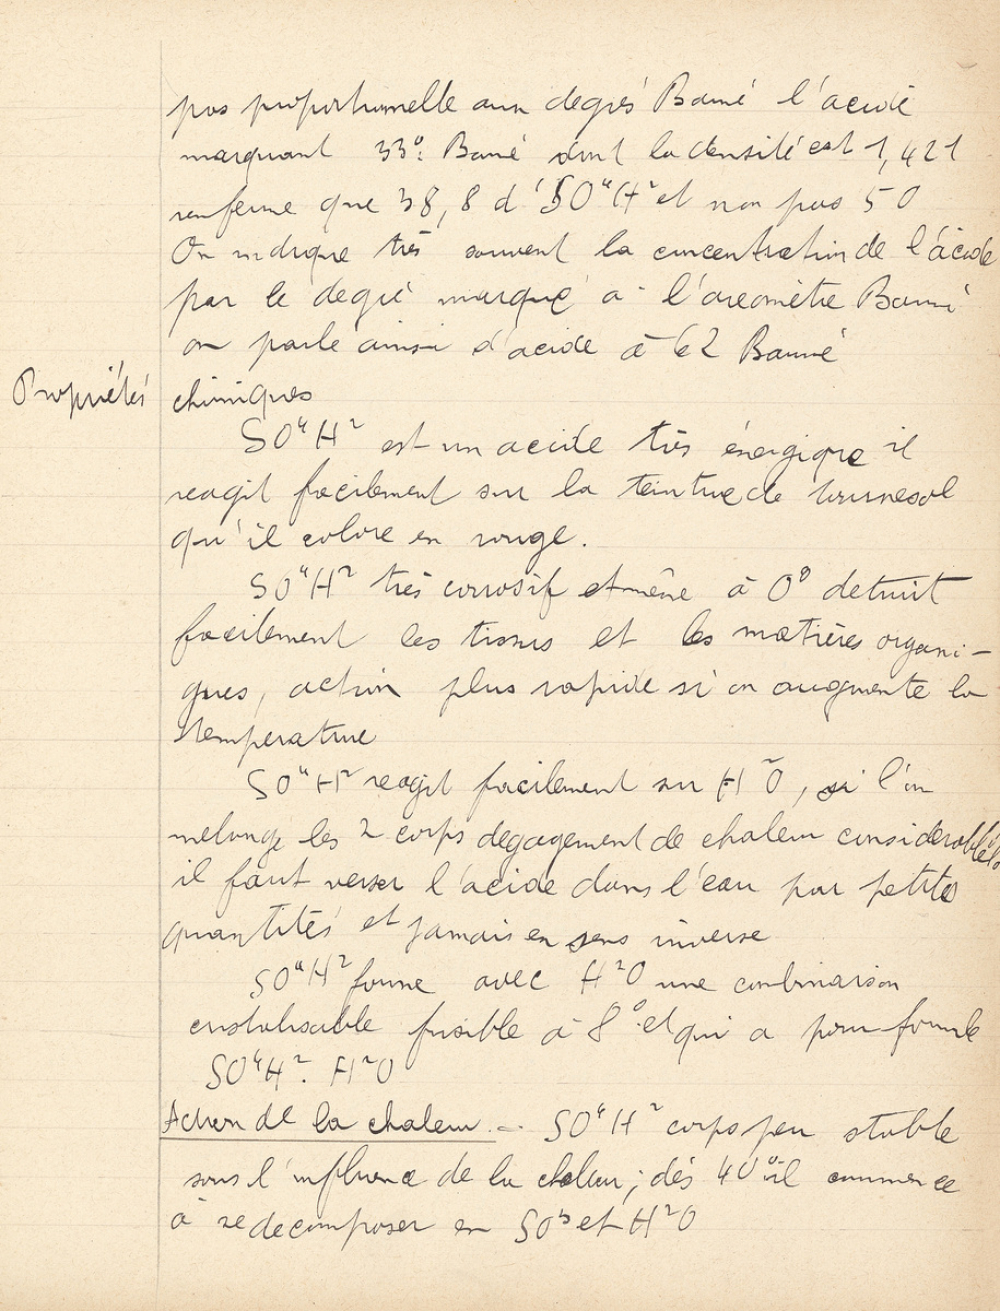 pas proportionnelle aux degrés Baumé l'acide
marquant 33° Baumé dont la densité est 1,421
renferme que 38,8 d'SO⁴H² et non pas 50
On indique très souvent la concentration de l'acide
par le degré marqué à l'areomètre Baumé
on parle ainsi d'acide à 62 Baumé
Propriétés chimiques
SO⁴H² est un acide très énergique il
reagit facilement sur la teinture de tournesol
qu'il colore en rouge.
SO⁴H² très corrosif et même à 0° detruit
facilement les tissus et les matières organi-
ques, action plus rapide si on augmente la
temperature
SO⁴H² reagit facilement sur H²O, si l'on
melange les 2 corps degagement de chaleur considerable
il faut verser l'acide dans l'eau par petites
quantités et jamais en sens inverse
SO⁴H² forme avec H²O une combinaison
cristalisable fusible à 8° et qui a pour formule
SO⁴H². H²O
Action de la chaleur.- SO⁴H² corps peu stable
sous l'influence de la chaleur; dès 40° il commence
à se decomposer en SO³ et H²O